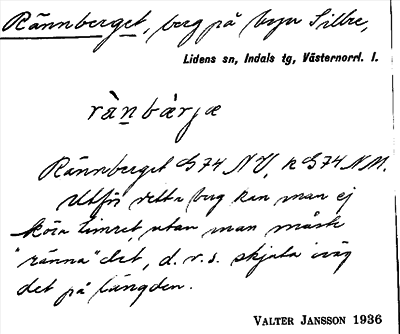 Rännberget, berg på byn Sillre,
Lidens sn, Indals tg, Västernorrl. l.
rànbàrjæ
Rännberget G74 NV, k G74 NM.
Utför detta berg kan man ej
köra timret, utan man måste
"ränna" det, d.v.s. skjuta iväg
det på längden.
VALTER JANSSON 1936